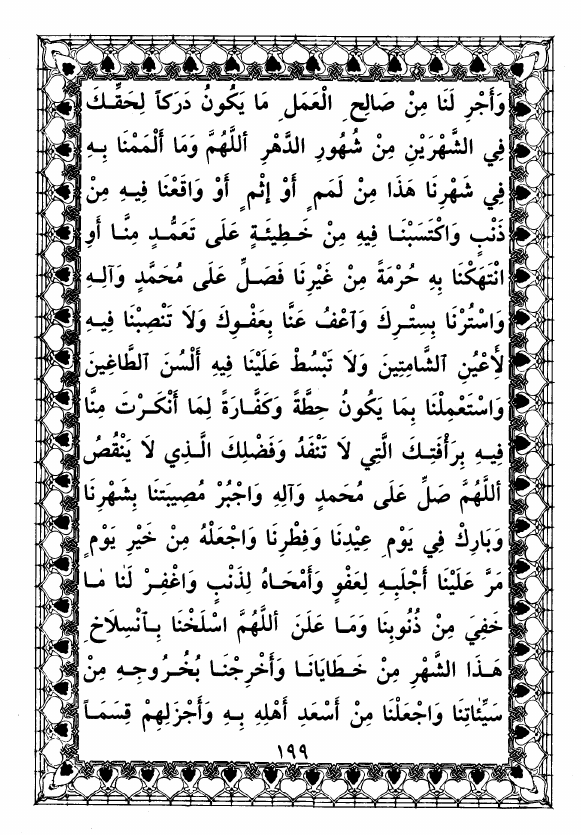 وَأَجْرِ لَنَا مِنْ صَالِحِ الْعَمَلِ مَا يَكُونُ دَرَكاً لِحَقِّكَ
فِي الشَّهْرَيْنِ مِنْ شُهُورِ الدَّهْرِ أللَّهُمَّ وَمَا أَلْمَمْنَا بِهِ
فِي شَهْرِنَا هَذَا مِنْ لَمَمٍ أَوْ إِثْمٍ أَوْ وَاقَعْنَا فِيهِ مِنْ
ذَنْبٍ وَاكْتَسَبْنَا فِيهِ مِنْ خَطِيئَةٍ عَلَى تَعَمُّدٍ مِنَّا أَوِ
انْتَهَكْنَا بِهِ حُرْمَةً مِنْ غَيْرِنَا فَصَلِّ عَلَى مُحَمَّدٍ وَآلِهِ
وَاسْتُرْنَا بِسِتْرِكَ وَاَعْفُ عَنَّا بِعَفْوِكَ وَلَا تَنْصِبْنَا فِيهِ
لِأَعْيُنِ ٱلشَّامِتِينَ وَلَا تَبْسُطْ عَلَيْنَا فِيهِ أَلْسُنَ ٱلطَّاغِينَ
وَاسْتَعْمِلْنَا بِمَا يَكُونُ حِطَّةً وَكَفَّارَةً لِمَا أَنْكَرْتَ مِنَّا
فِيهِ بِرَأْفَتِكَ الَّتِي لَا تَنْفَدُ وَفَضْلِكَ الَّذِي لَا يَنْقُصُ
أللَّهُمَّ صَلِّ عَلَى مُحَمدٍ وَآلِهِ وَاجْبُرْ مُصِيبَتَنَا بِشَهْرِنَا
وَبَارِكْ فِي يَوْمِ عِيْدِنَا وَفِطْرِنَا وَاجْعَلْهُ مِنْ خَيْرِ يَوْمٍ
مَرَّ عَلَيْنَا أَجْلَبِهِ لِعَفْوٍ وَأَمْحَاهُ لِذَنْبٍ وَاغْفِرْ لَنَا مَا
خَفِيَ مِنْ ذُنُوبِنَا وَمَا عَلَنَ أللَّهُمَّ اسْلَخْنَا بِٱنْسِلَاخِ
هَذَا الشَّهْرِ مِنْ خَطَايَانَا وَأَخْرِجْنَا بُخُرُوجِهِ مِنْ
سَيِّئاتِنَا وَاجْعَلْنَا مِنْ أَسْعَدِ أَهْلِهِ بِهِ وَأَجْزَلِهِمْ قِسَمَاً
١٩٩